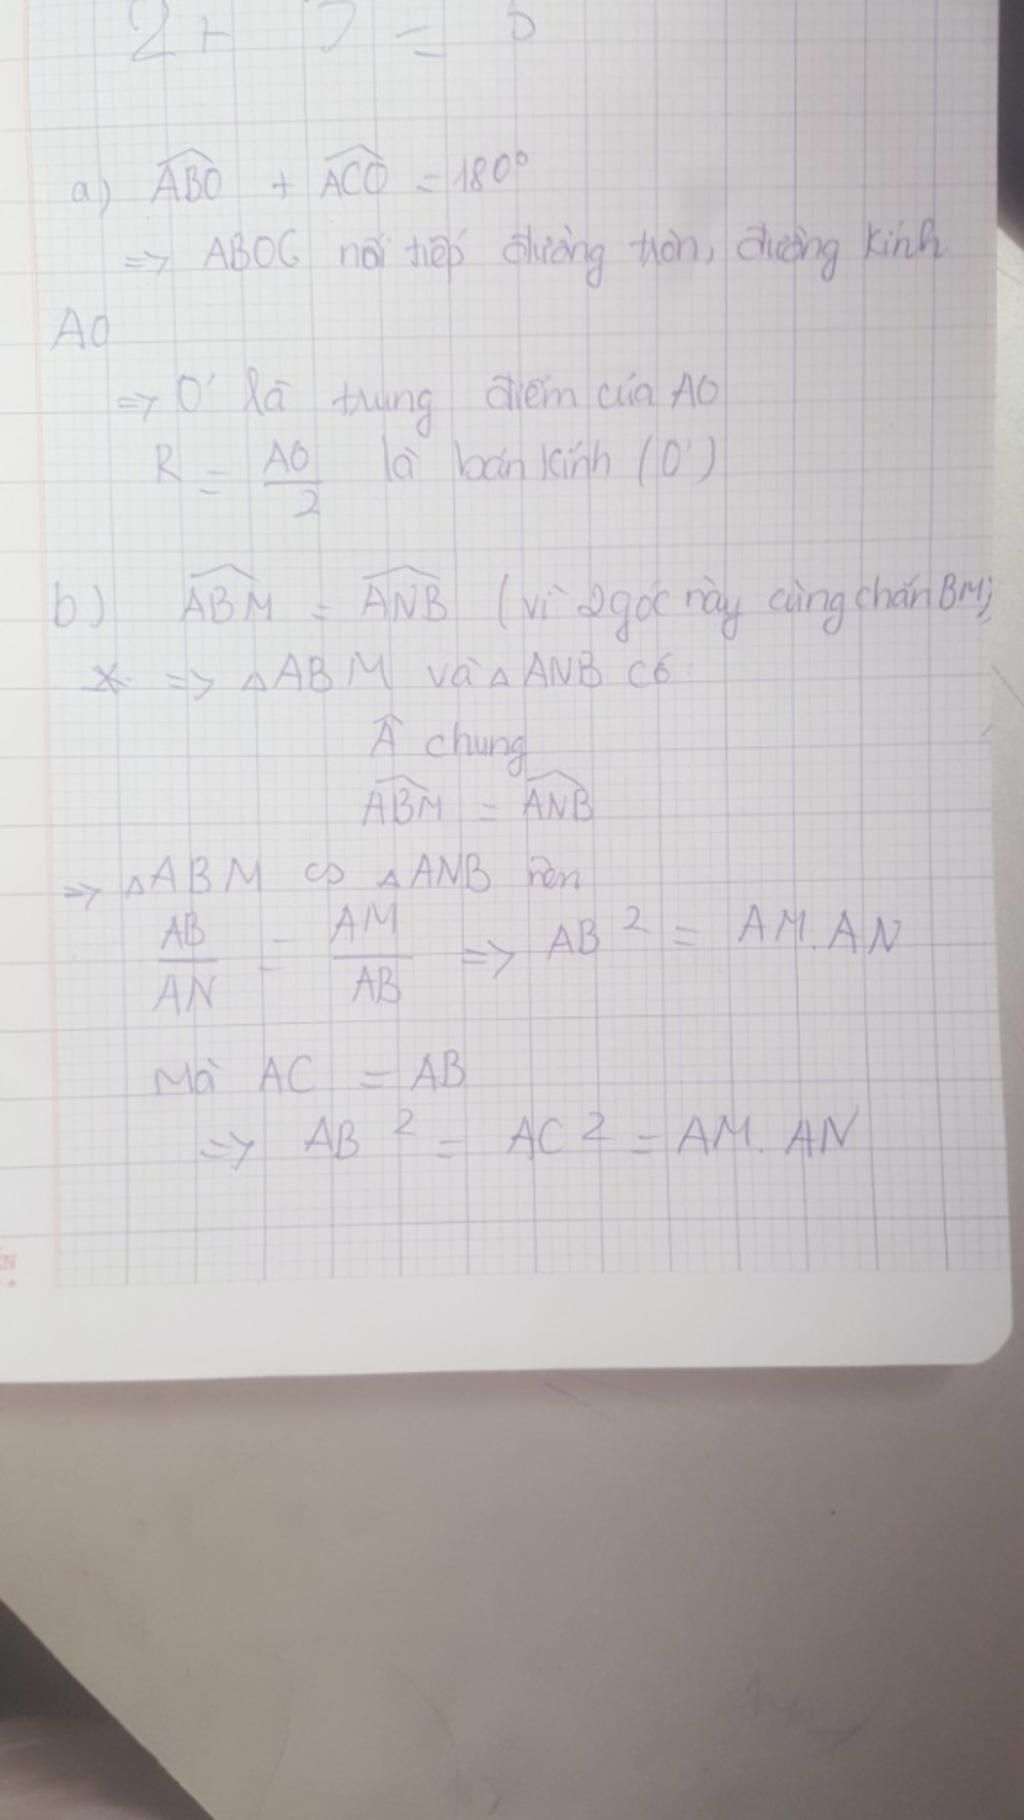 2 + =
a) ABO + ACO = 180°
=> ABOC nội tiếp đường tròn, đường kính
AO
=> O' là trung điểm của AO
R = AO/2 là bán kính (O')
b) ABM = ANB (vì 2 góc này cùng chắn BM)
* => △ABM và △ANB có:
 chung
ABM = ANB
=> △ABM ∽ △ANB nên
AB/AN = AM/AB => AB² = AM.AN
Mà AC = AB
=> AB² = AC² = AM.AN